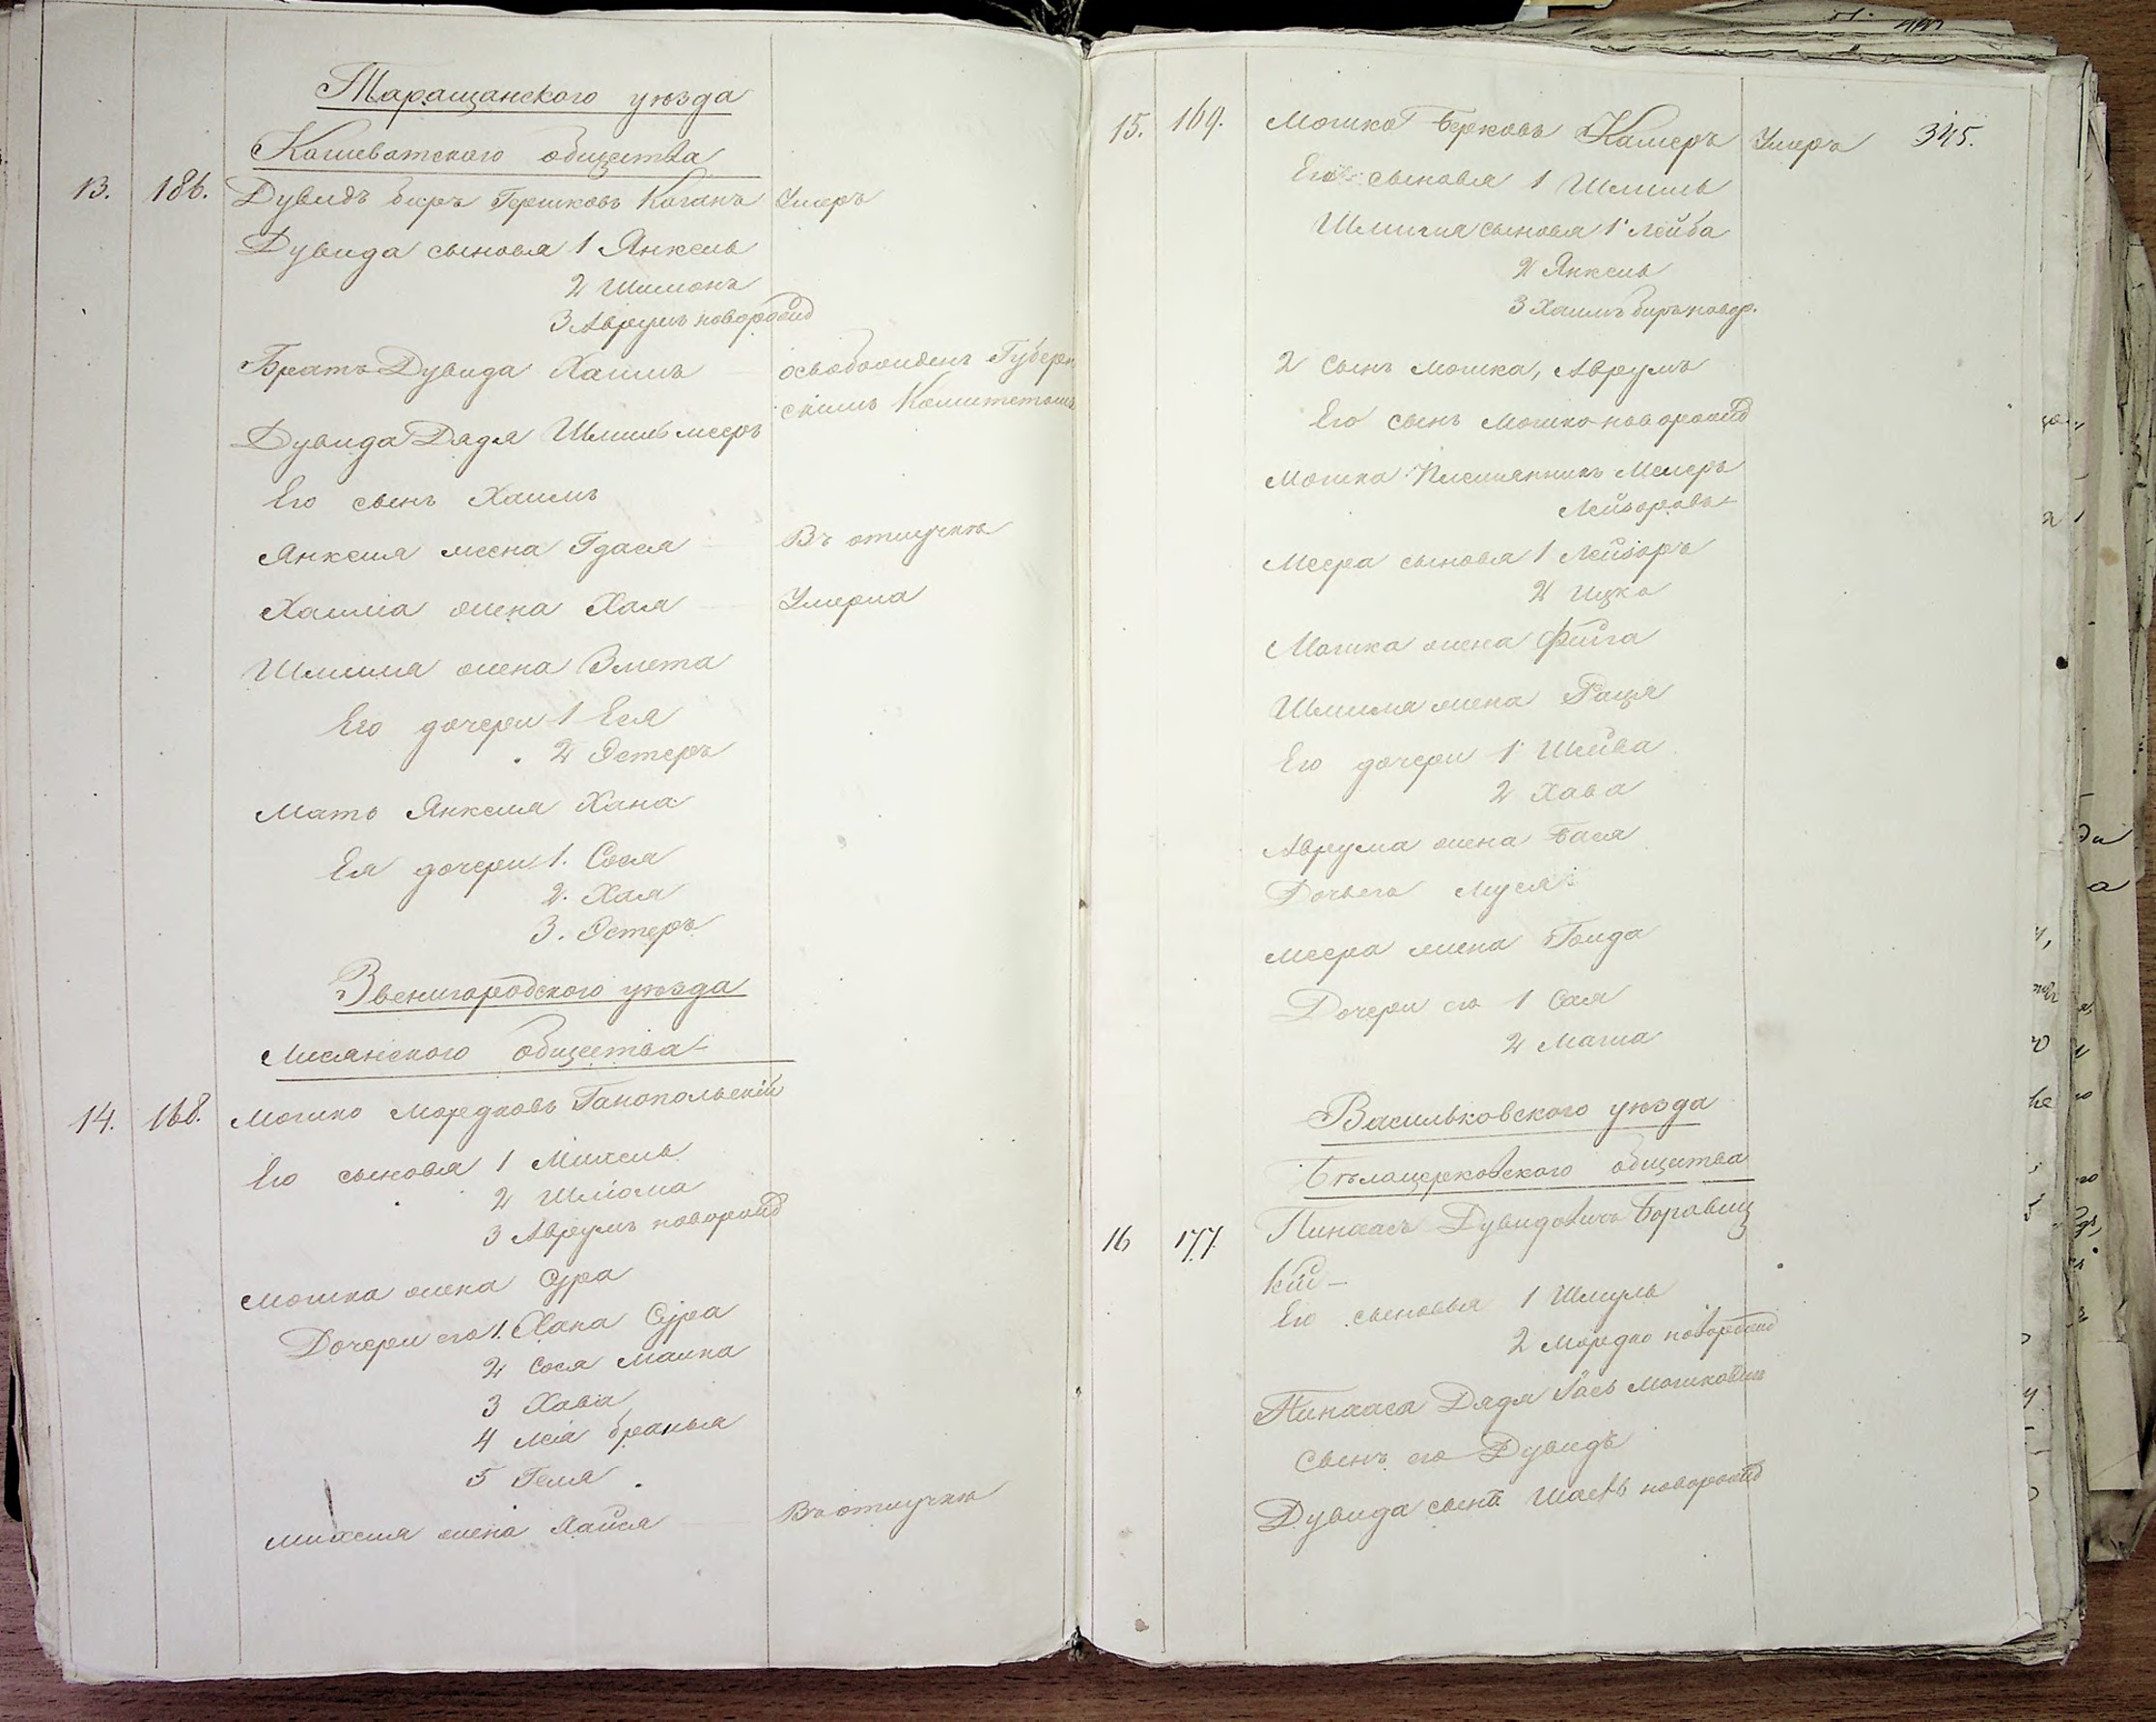 Таращанского уѣзда
Кашеватского общества
13. 186. Дувидъ беръ Гершковъ Коганъ Умеръ
Дувида сыновья 1 Янкель
2 Шимонъ
3 Аврумъ новорожд
Братъ Дувида Хаимъ освобожденъ Губерн
скимъ Комитетомъ
Дувида Дядя Шмиль мееръ
Его сынъ Хаимъ
Янкеля жена Гдася Въ отлучкѣ
Хаима жена Хая Умерла
Шмиля жена Злета
Его дочери 1 Еся
2 Эстеръ
Мать Янкеля Хана
Ея дочери 1. Сося
2. Хая
3. Эстеръ
Звенигородского уѣзда
Лисянского общества
14. 168. Мошко Мордковъ Ганопольскій
Его сыновья 1 Михель
2 Шліома
3 Аврумъ новорожд
Мошка жена Сура
Дочери его 1. Хана Сура
2 Сося Малка
3 Хава
4 Леа бранья
5 Геля
Михеля жена Хайся Въ отлучкѣ
15. 169. Мошко Берковъ Камеръ Умеръ 345.
Его сыновья 1 Шмиль
Шмиля сыновья 1 Лейба
2 Янкель
3 Хаимъ беръ новор.
2 Сынъ Мошка, Аврумъ
Его сынъ Мошко новорожд
Мошка Племянникъ Мееръ
Лейзоровъ
Меера сыновья 1 Лейзоръ
2 Ицко
Мошка жена Фейга
Шмиля жена Рация
Его дочери 1 Шейва
2 Хава
Аврума жена Бася
Дочь его Муся
Меера жена Гоlда
Дочери его 1 Сая
2 Маша
Васильковского уѣзда
Бѣлоцерковского общества
16 177. Пинхасъ Дувидовичъ Боравиц
кій
Его сыновья 1 Шмуль
2 Мордко новорожд
Пинхаса Дядя Іосъ Мошковичъ
Сынъ его Дувидъ
Дувида сынъ новорожд